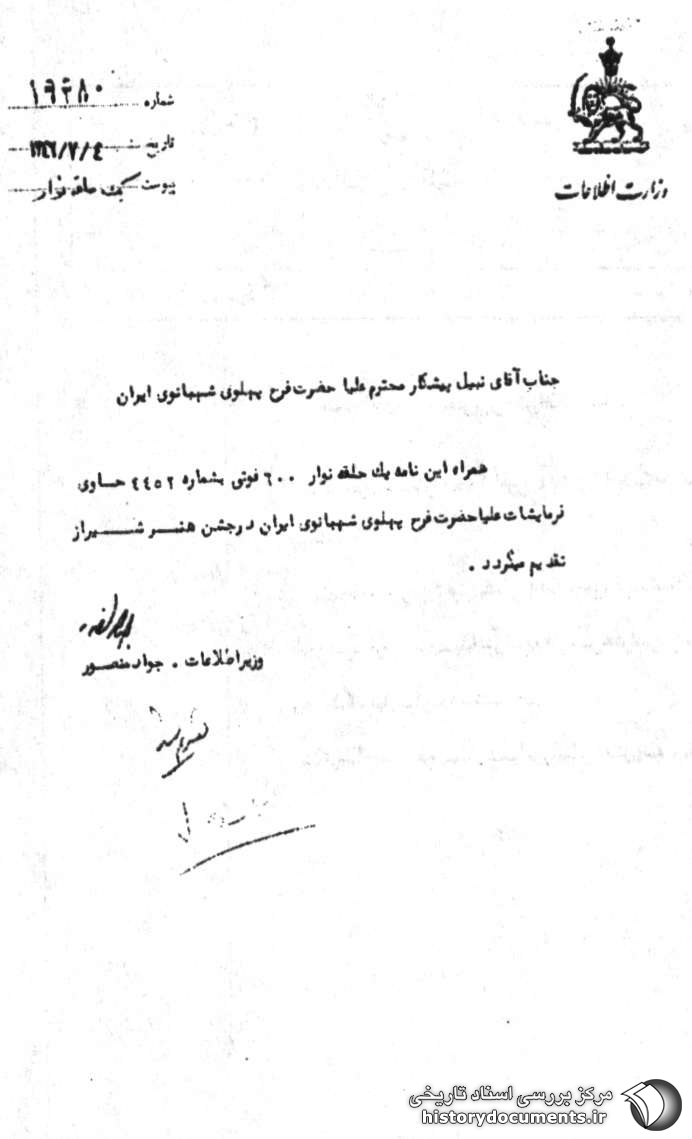 وزارت اطلاعات
شماره
تاریخ ۱۳۴۶/۷/۴
پیوست یک حلقه نوار
جناب آقای نبیل پیشکار محترم علیا حضرت فرح پهلوی شهبانوی ایران
همراه این نامه یك حلقه نوار ۶۰۰ فوتی بشماره ۴۴۵۲ حاوی
فرمایشات علیاحضرت فرح پهلوی شهبانوی ایران درجشن هنر شیراز
تقدیم میگردد .
وزیر اطلاعات . جواد منصور
مرکز بررسی اسناد تاریخی
historydocuments.ir